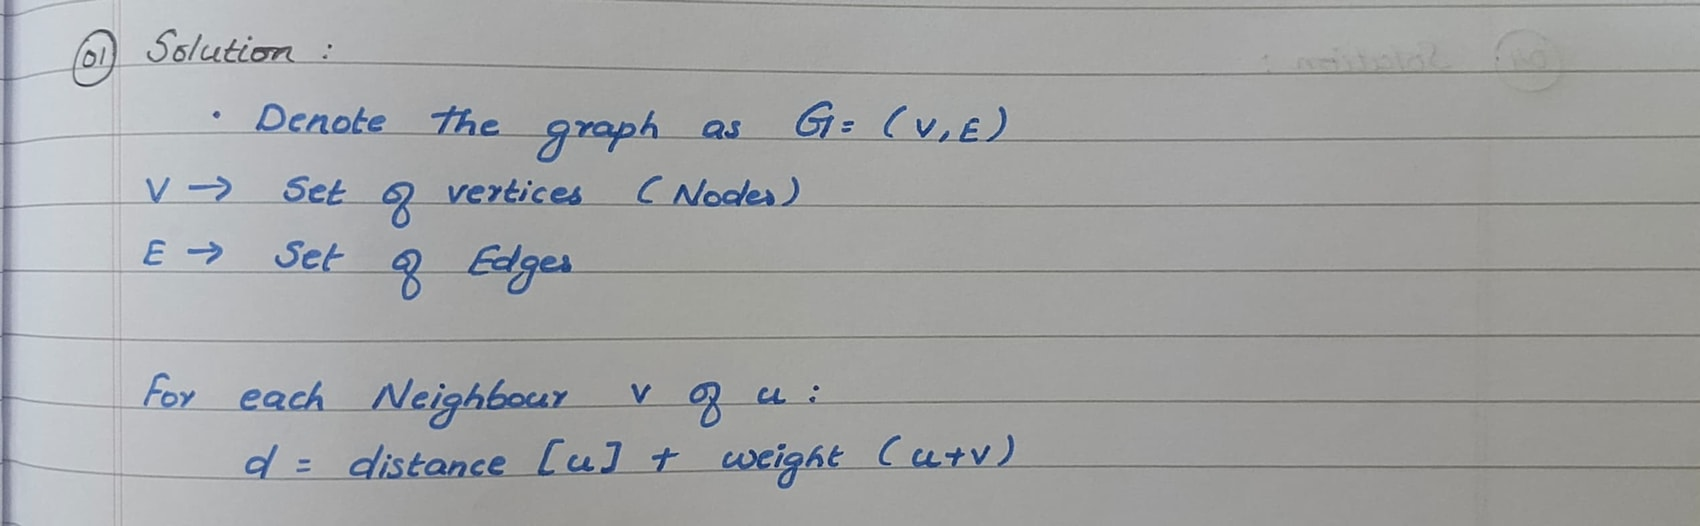 01 Solution :
· Denote the graph as G = (V, E)
V → Set of vertices (Nodes)
E → Set of Edges
For each Neighbour v of u :
d = distance [u] + weight (u+v)